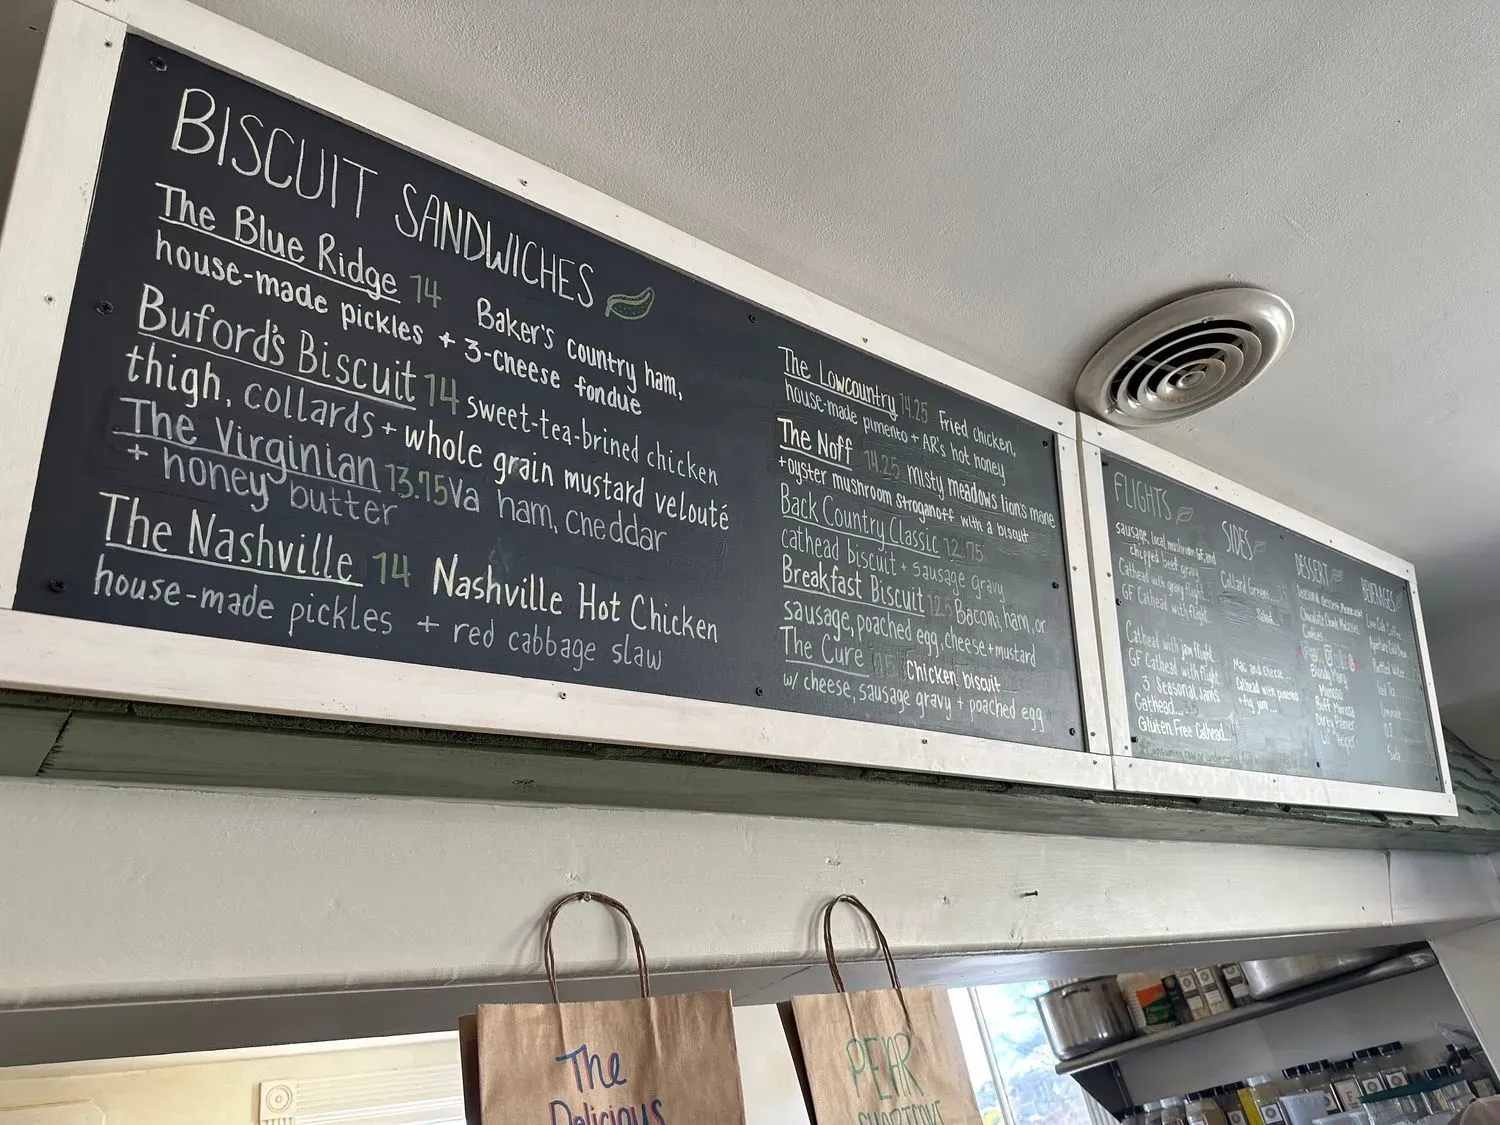 BISCUIT SANDWICHES
The Blue Ridge 14 Baker's country ham,
house-made pickles + 3-cheese fondue
Buford's Biscuit 14 sweet-tea-brined chicken
thigh, collards + whole grain mustard velouté
The Virginian 13.75 Va ham, cheddar
+ honey butter
The Nashville 14 Nashville Hot Chicken
house-made pickles + red cabbage slaw
The Lowcountry 14.25 Fried chicken,
house-made pimento + AR's hot honey
The Noff 14.25 misty meadows lion's mane
+ oyster mushroom stroganoff with a biscuit
Back Country Classic 12.75
cathead biscuit + sausage gravy
Breakfast Biscuit 12.5 Bacon, ham, or
sausage, poached egg, cheese + mustard
The Cure Chicken biscuit
w/ cheese, sausage gravy + poached egg
FLIGHTS
sausage, local mushroom GF, and
chipped beef gravy
Cathead with gravy flight
GF Cathead with flight..
Cathead with jam flight
GF Cathead with flight..
3 Seasonal Jams
Cathead...
Gluten Free Cathead...
SIDES
Collard Greens
Salad
Mac and Cheese
Cathead with pimento
+ fig jam...
DESSERT
Seasonal dessert, Please ask!
Chocolate Chunk
Cookies
Bloody Mary
Mimosa
Buff Mimosa
Dirty Palmer
Lil'
BEVERAGES
Coffee
Bottled Water
Iced Tea
Lemonade
O.J.
Soda
The
Delicious
PEAR
SHORTCAKE